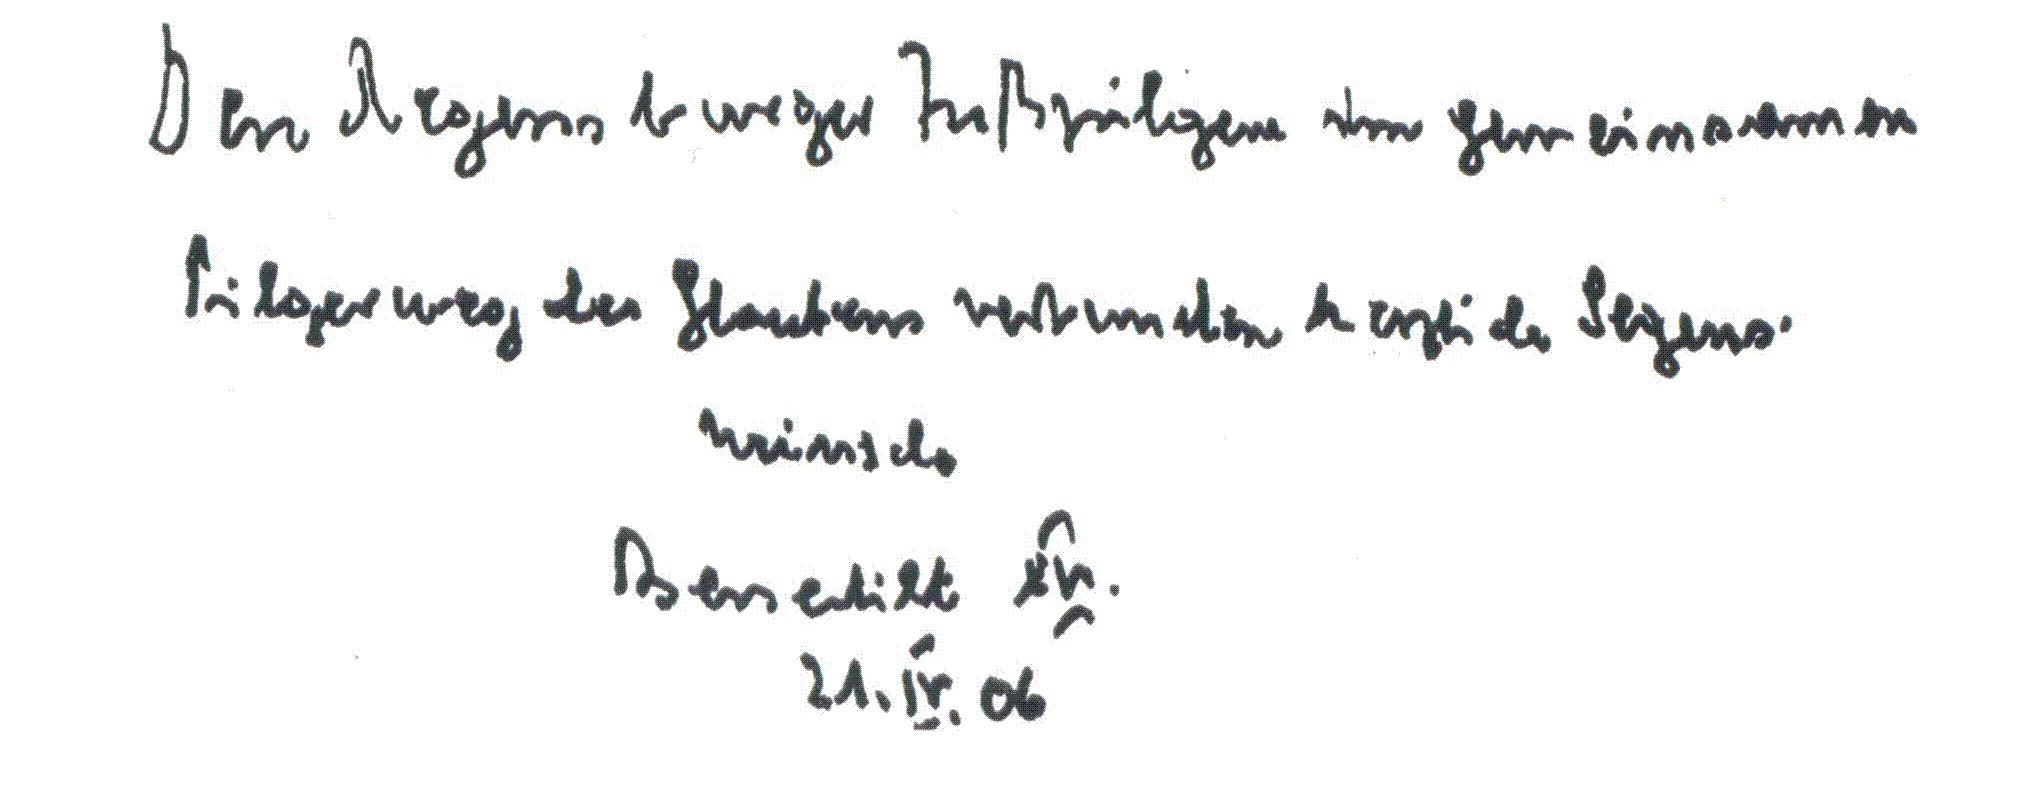 Den Regensburger Fußpilgern im gemeinsamen
Pilgerweg des Glaubens verbunden herzliche Segens-
wünsche
Benedikt XVI.
21.IV.06